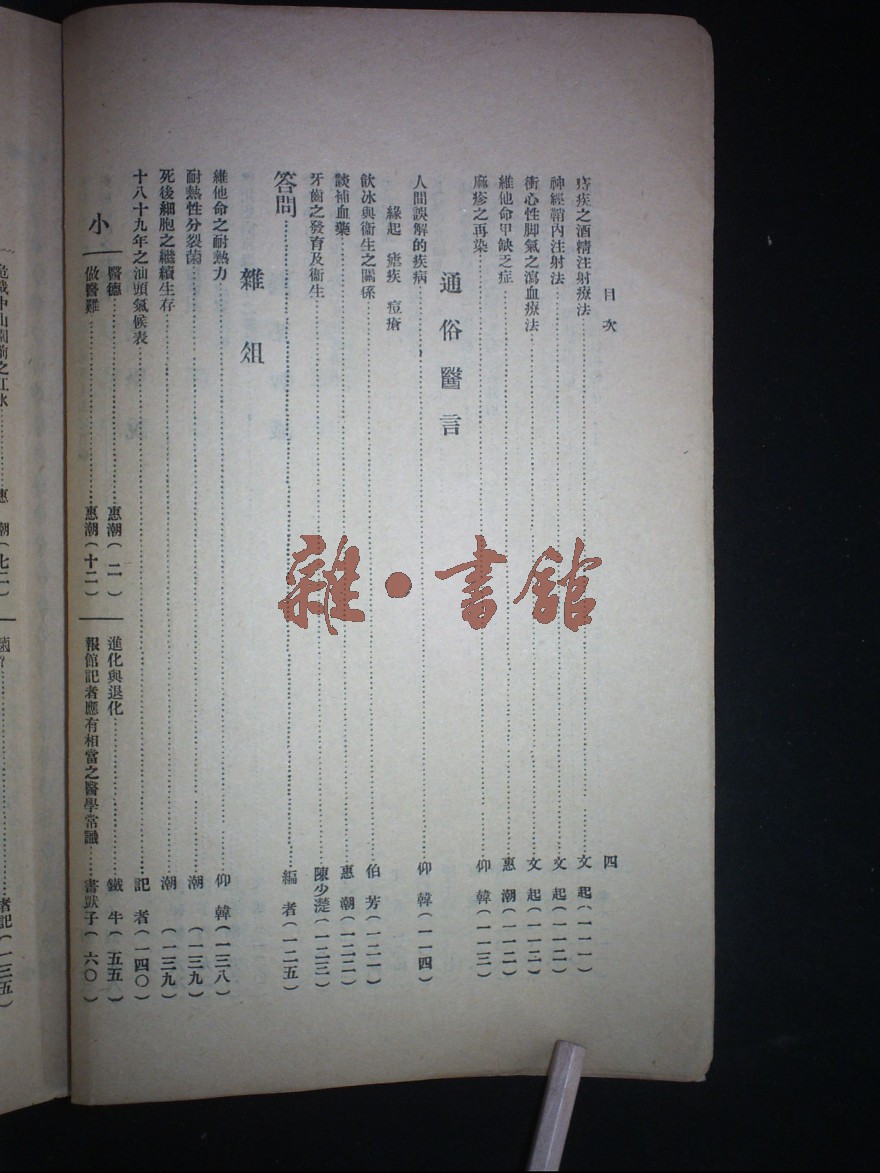 目次 四
痔疾之酒精注射療法……文起(一一一)
神經鞘內注射法……文起(一一二)
衝心性脚氣之瀉血療法……文起(一一二)
維他命甲缺乏症……惠潮(一一二)
麻疹之再染……仰韓(一一三)
通俗醫言
人間誤解的疾病……仰韓(一一四)
緣起 瘧疾 痘瘡
飲冰與衞生之關係……伯芳(一二一)
談補血藥……惠潮(一二二)
牙齒之發育及衞生……陳少(一二三)
答問……編者(一二五)
雜俎
維他命之耐熱力……仰韓(一三八)
耐熱性分裂菌……潮(一三九)
死後細胞之繼續生存……潮(一三九)
十八十九年之汕頭氣候表……記者(一四〇)
小
醫德……惠潮(二)
做醫難……惠潮(十二)
進化與退化……鐵牛(五五)
報館記者應有相當之醫學常識……書獃子(六〇)
中山
之紅冰……惠潮(七二)
者記(一三五)
雜·書館